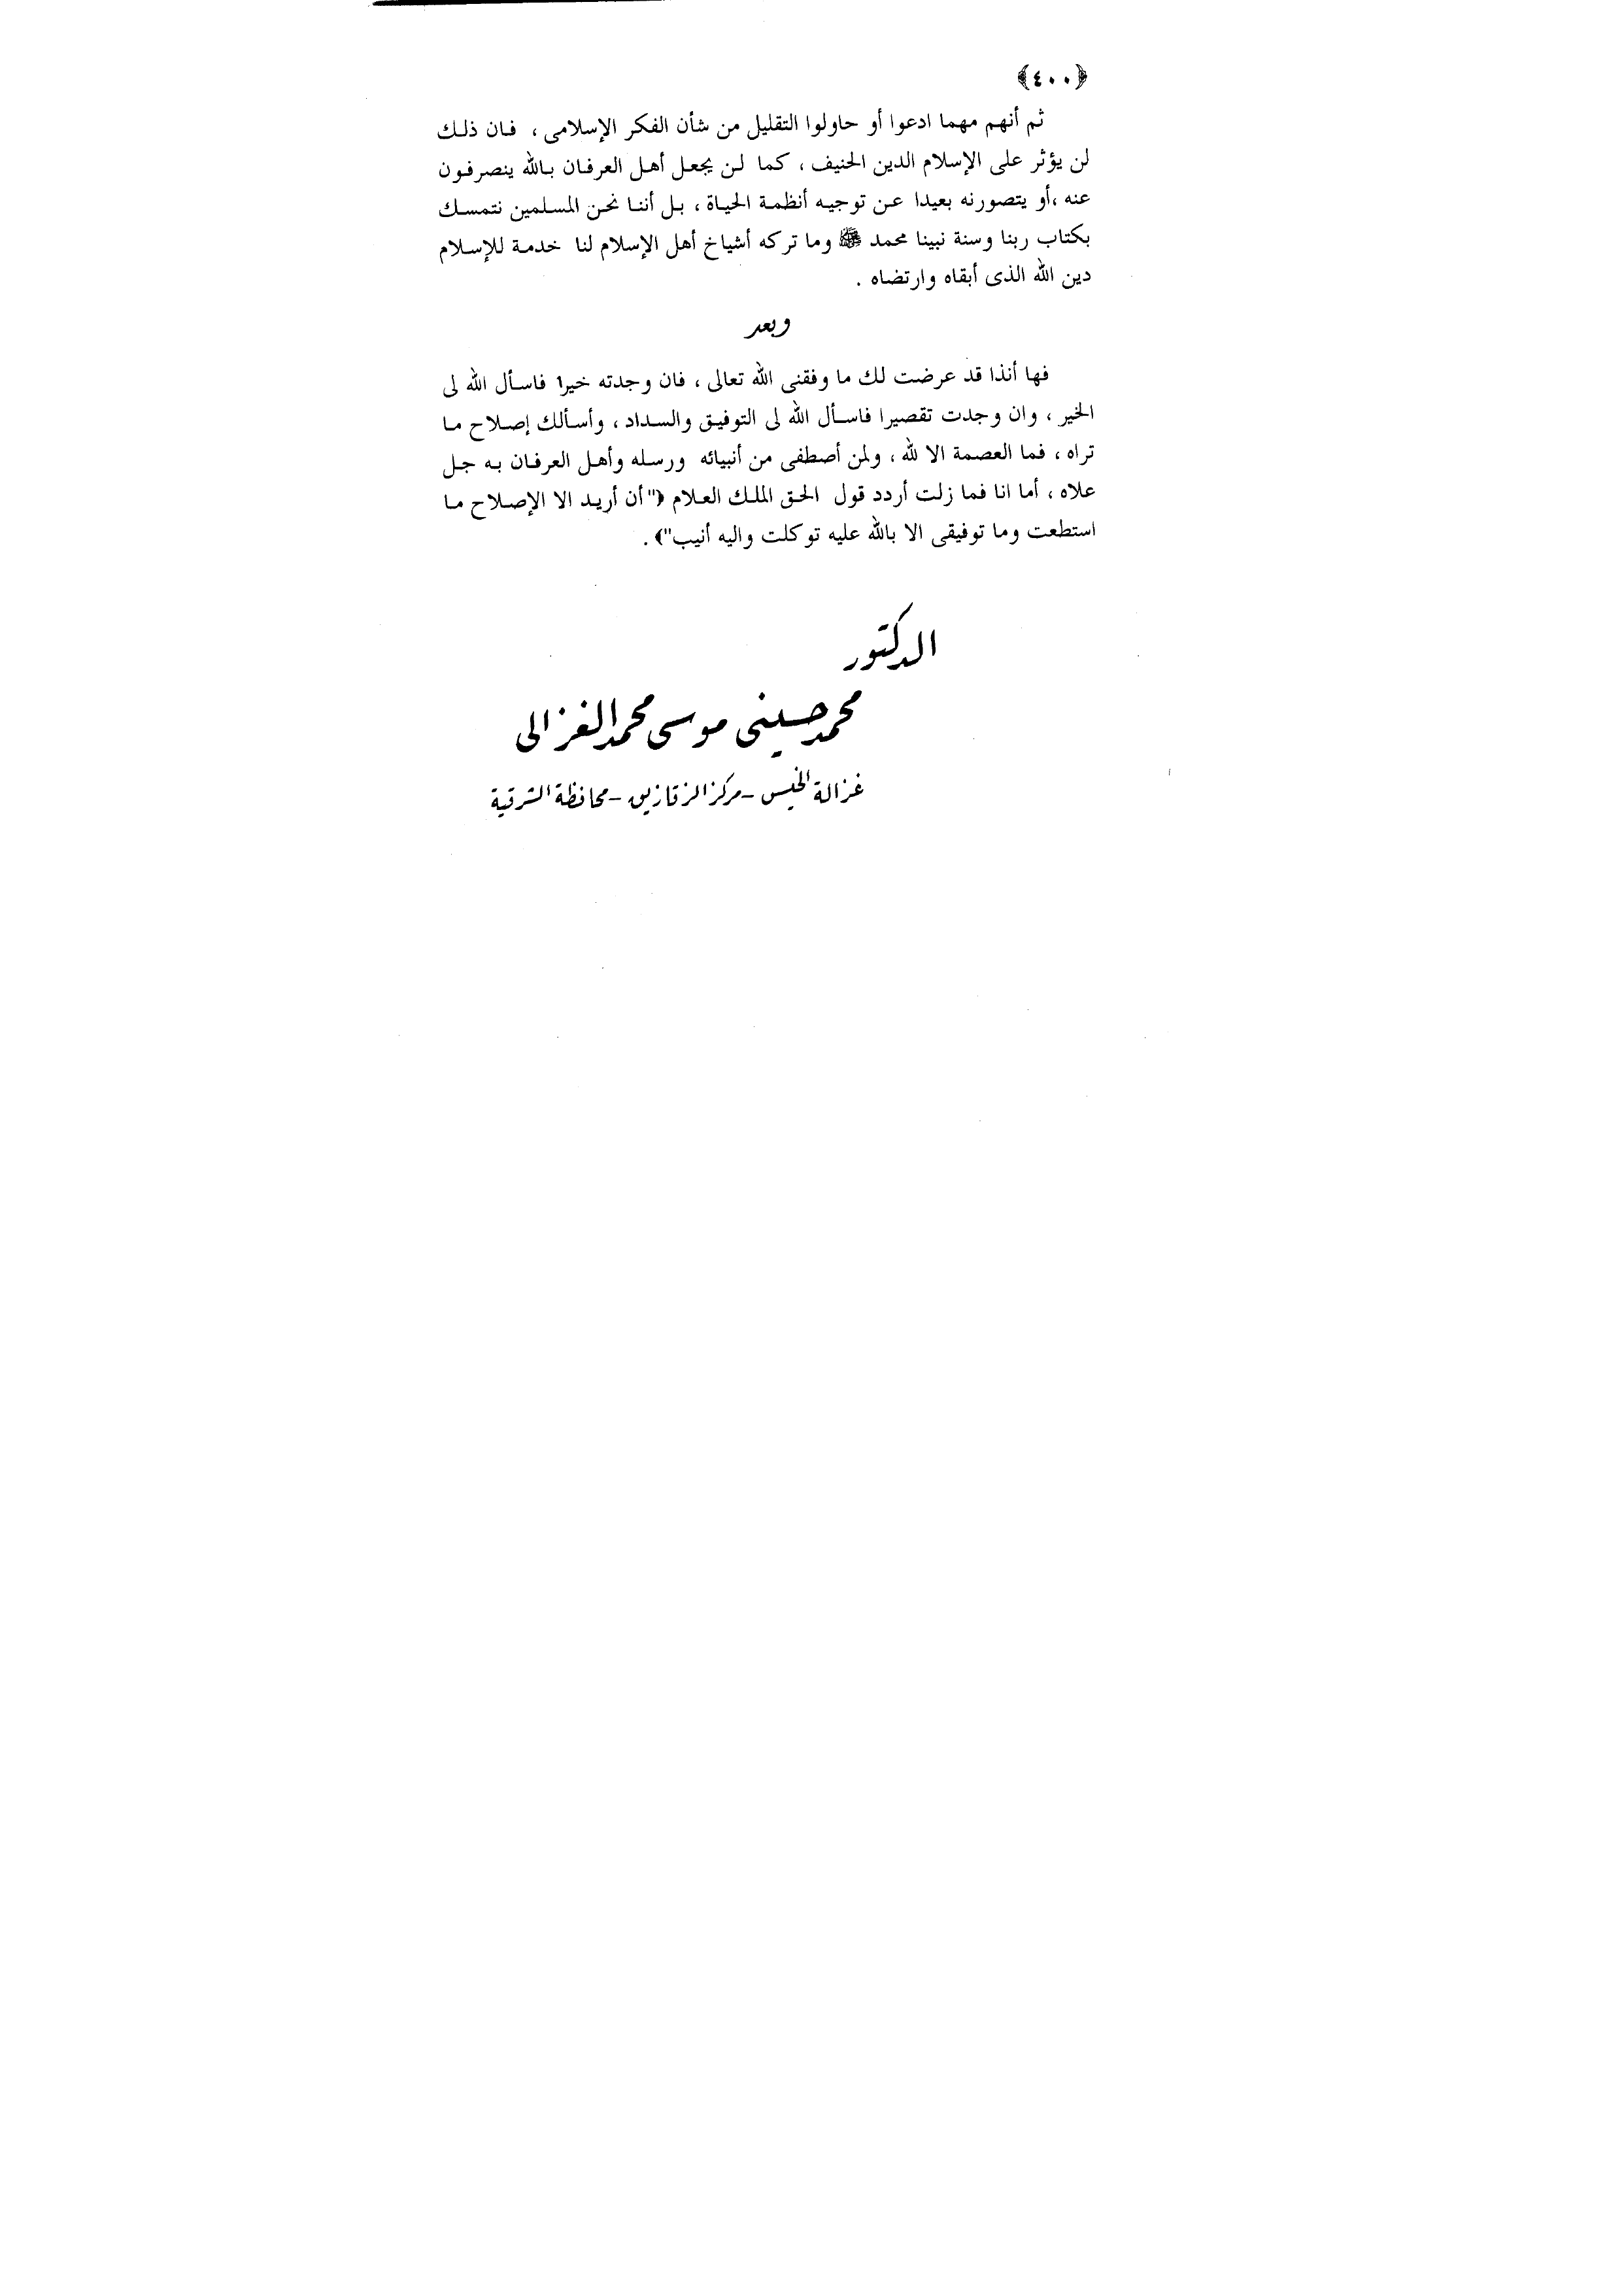 ﴿٤٠٠﴾
ثم أنهم مهما ادعوا أو حاولوا التقليل من شأن الفكر الإسلامى ، فان ذلك
لن يؤثر على الإسلام الدين الحنيف ، كما لن يجعل أهل العرفان بالله ينصرفون
عنه ،أو يتصورنه بعيدا عن توجيه أنظمة الحياة ، بل أننا نحن المسلمين نتمسك
بكتاب ربنا وسنة نبينا محمد ﷺ وما تركه أشياخ أهل الإسلام لنا خدمة للإسلام
دين الله الذى أبقاه وارتضاه .
وبعد
فها أنذا قد عرضت لك ما وفقنى الله تعالى ، فان وجدته خيرا فاسأل الله لى
الخير ، وان وجدت تقصيرا فاسأل الله لى التوفيق والسداد ، وأسألك إصلاح ما
تراه ، فما العصمة الا لله ، ولمن أصطفى من أنبيائه ورسله وأهل العرفان به جل
علاه ، أما انا فما زلت أردد قول الحق الملك العلام ﴿"أن أريد الا الإصلاح ما
استطعت وما توفيقى الا بالله عليه توكلت واليه أنيب"﴾ .
الدكتور
محمد حسينى موسى محمد الغزالى
غزالة الخيس - مركز الزقازيق - محافظة الشرقية